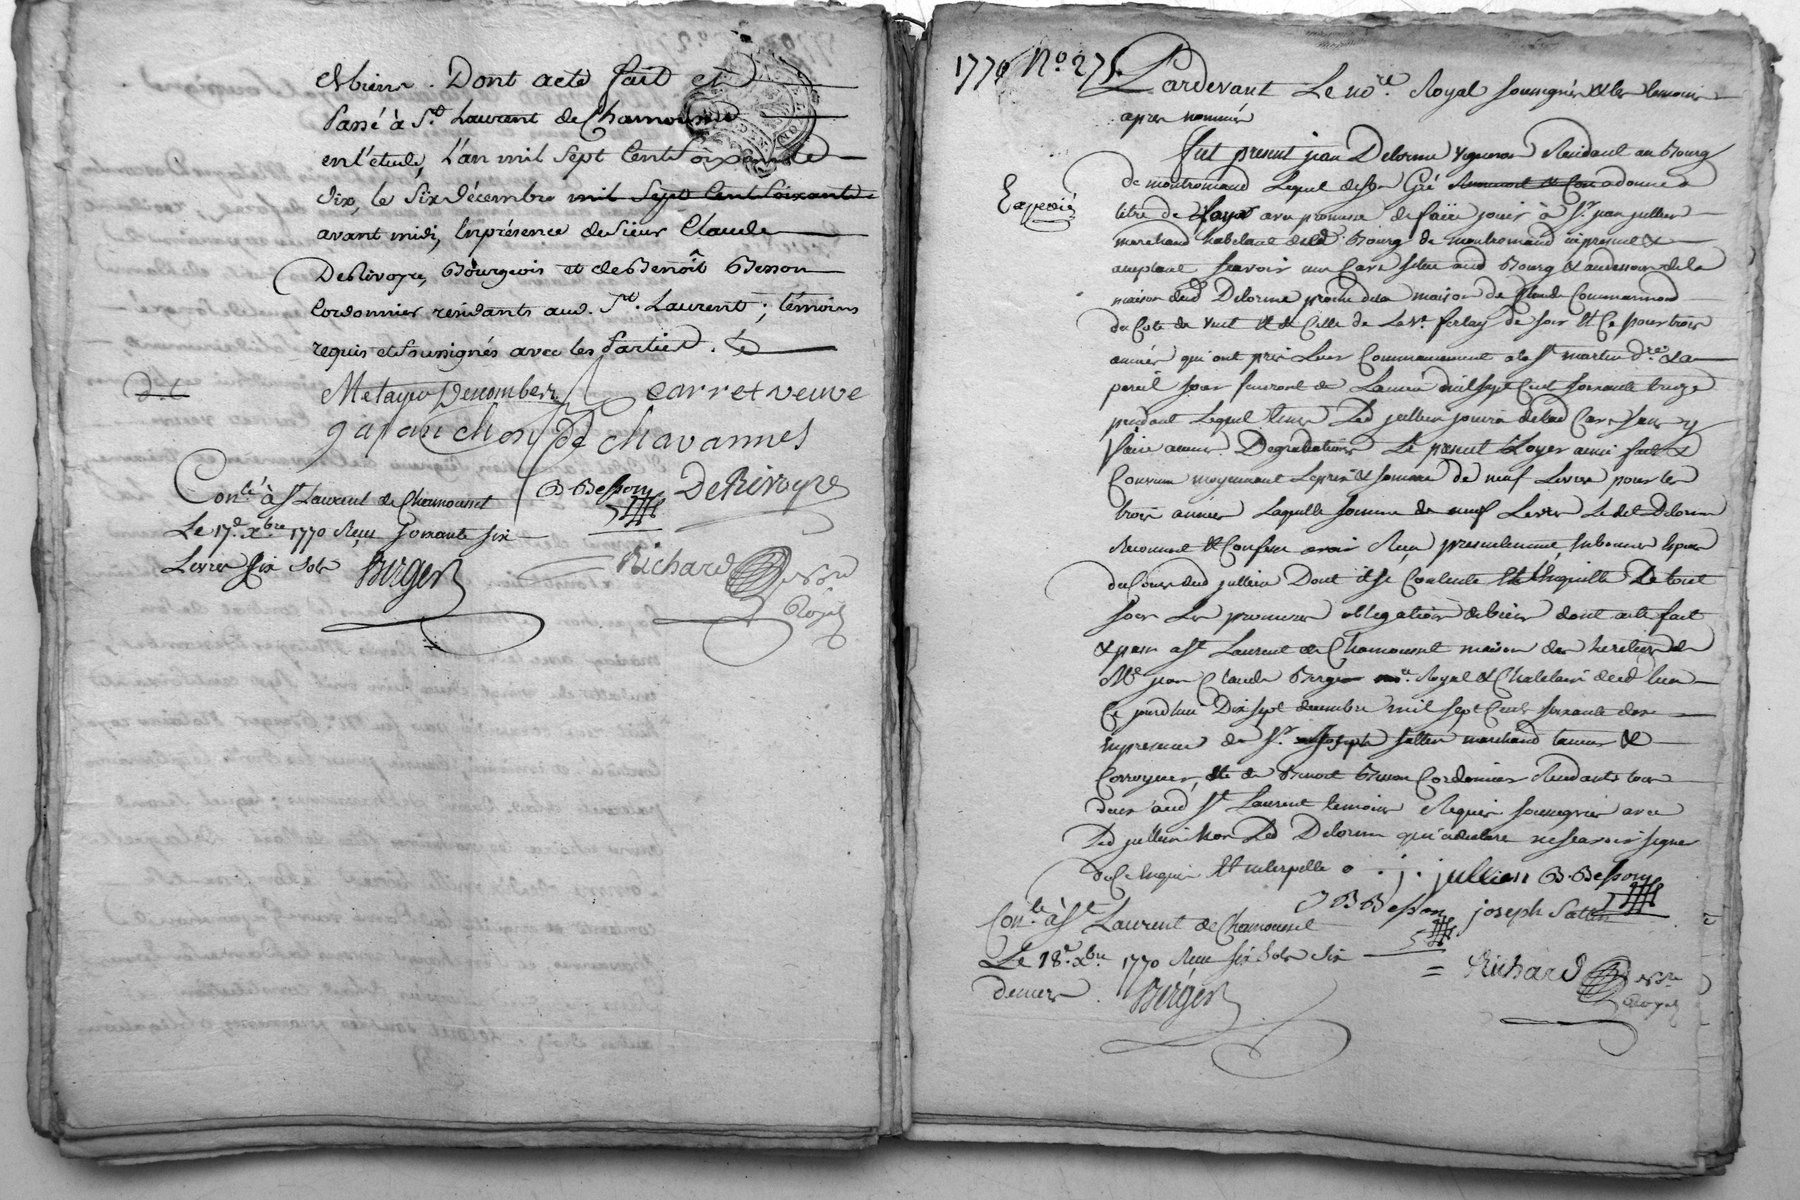 &biens. Dont acte fait et
Passé à St. Laurent de Chamousset
en l'étude, l'an mil Sept Cent Soixante
dix, le Six décembre mil Sept Cent Soixante
avant midi, En présence de Sieur Claude
DeRivoyre, Bourgeois et de Benoît Besson
Cordonnier résidants aud. St. Laurent; témoins
requis et soussignés avec les Parties.
Carret veuve
gajanchon De chavannes
B. Besson DeRivoyre
Conlé à St Laurent de Chamousset
Le 17e. Xbre 1770 Reçu Soixante six
Livres Six Sols Berger
Richard
Royal
1770 No. 275.
Pardevant Le nore. Royal soussigné & les temoins
apres nommés
fut present jean Delorme vigneron Residant au Bourg
de montromand Lequel de son Gré a donné a
titre de Loyer avec promesse de faire jouir à Sr. jean jullien
marchand habitant dud. Bourg de montromand icy present &
acceptant scavoir une Cave située aud Bourg & au dessous de la
maison dud Delorme proche de la maison de Claude Commarmond
du Coté de vent & de Celle de La ve. ferlay de soir & Ce pour trois
années qui ont pris Leur Commencement a la St martin dre. & a
pareil jour finiront de L'année mil sept Cent soixante treize
pendant Lequel tems Led jullien jouira de lad Cave sans y
faire aucunes Degradations Le present Loyer ainsi fait &
Convenu moyennant Le prix & somme de neuf Livres pour les
trois années Laquelle somme de neuf Livres Le dit Delorme
Reconnoit & Confesse avoir Reçu presentement
dud jullien Dont il se Contente & L'en quitte De tout
sous Les promesses obligations & biens dont acte fait
& passé a St Laurent de Chamousset maison des heritiers de
Me. jean Claude Berger nore. Royal & Chatelain dud lieu
Ce jourd'hui Dix sept decembre mil sept Cent soixante dix
En presence de Sr. joseph Sattin marchand tanneur &
Corroyeur, & de Benoit Besson Cordonnier Residants tous
deux aud St Laurent temoins Requis soussignés avec
Led jullien Non Led Delorme qui a declaré ne scavoir signer
de Ce Enquis & interpellé
Expedié
j. jullien B. Besson
B Besson joseph Sattin
Conlé à St Laurent de Chamousset
Le 18e. Xbre 1770 Reçu six Sols six
deniers. Berger
Richard
Royal